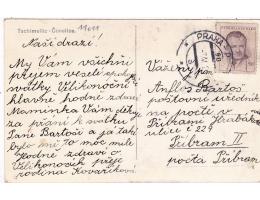 Tschimelitz - Čimelice.
11011
Naší drazí!
My Vám všichni
přejem veselé
svátky Velikonoční
hlavně hodně zdraví
Maminka Vám děkuje
za přání k svátku
Jana Bartoše a já také
bylo To moc malé
hodně zdraví o
Velikonocích přeje
rodina Kovaříkova
PRAHA
Vážený pan
Bartoš
poštovní úředník
na poště
Příbrami Hrabák
ulice č 229
Příbram II
pošta Příbram